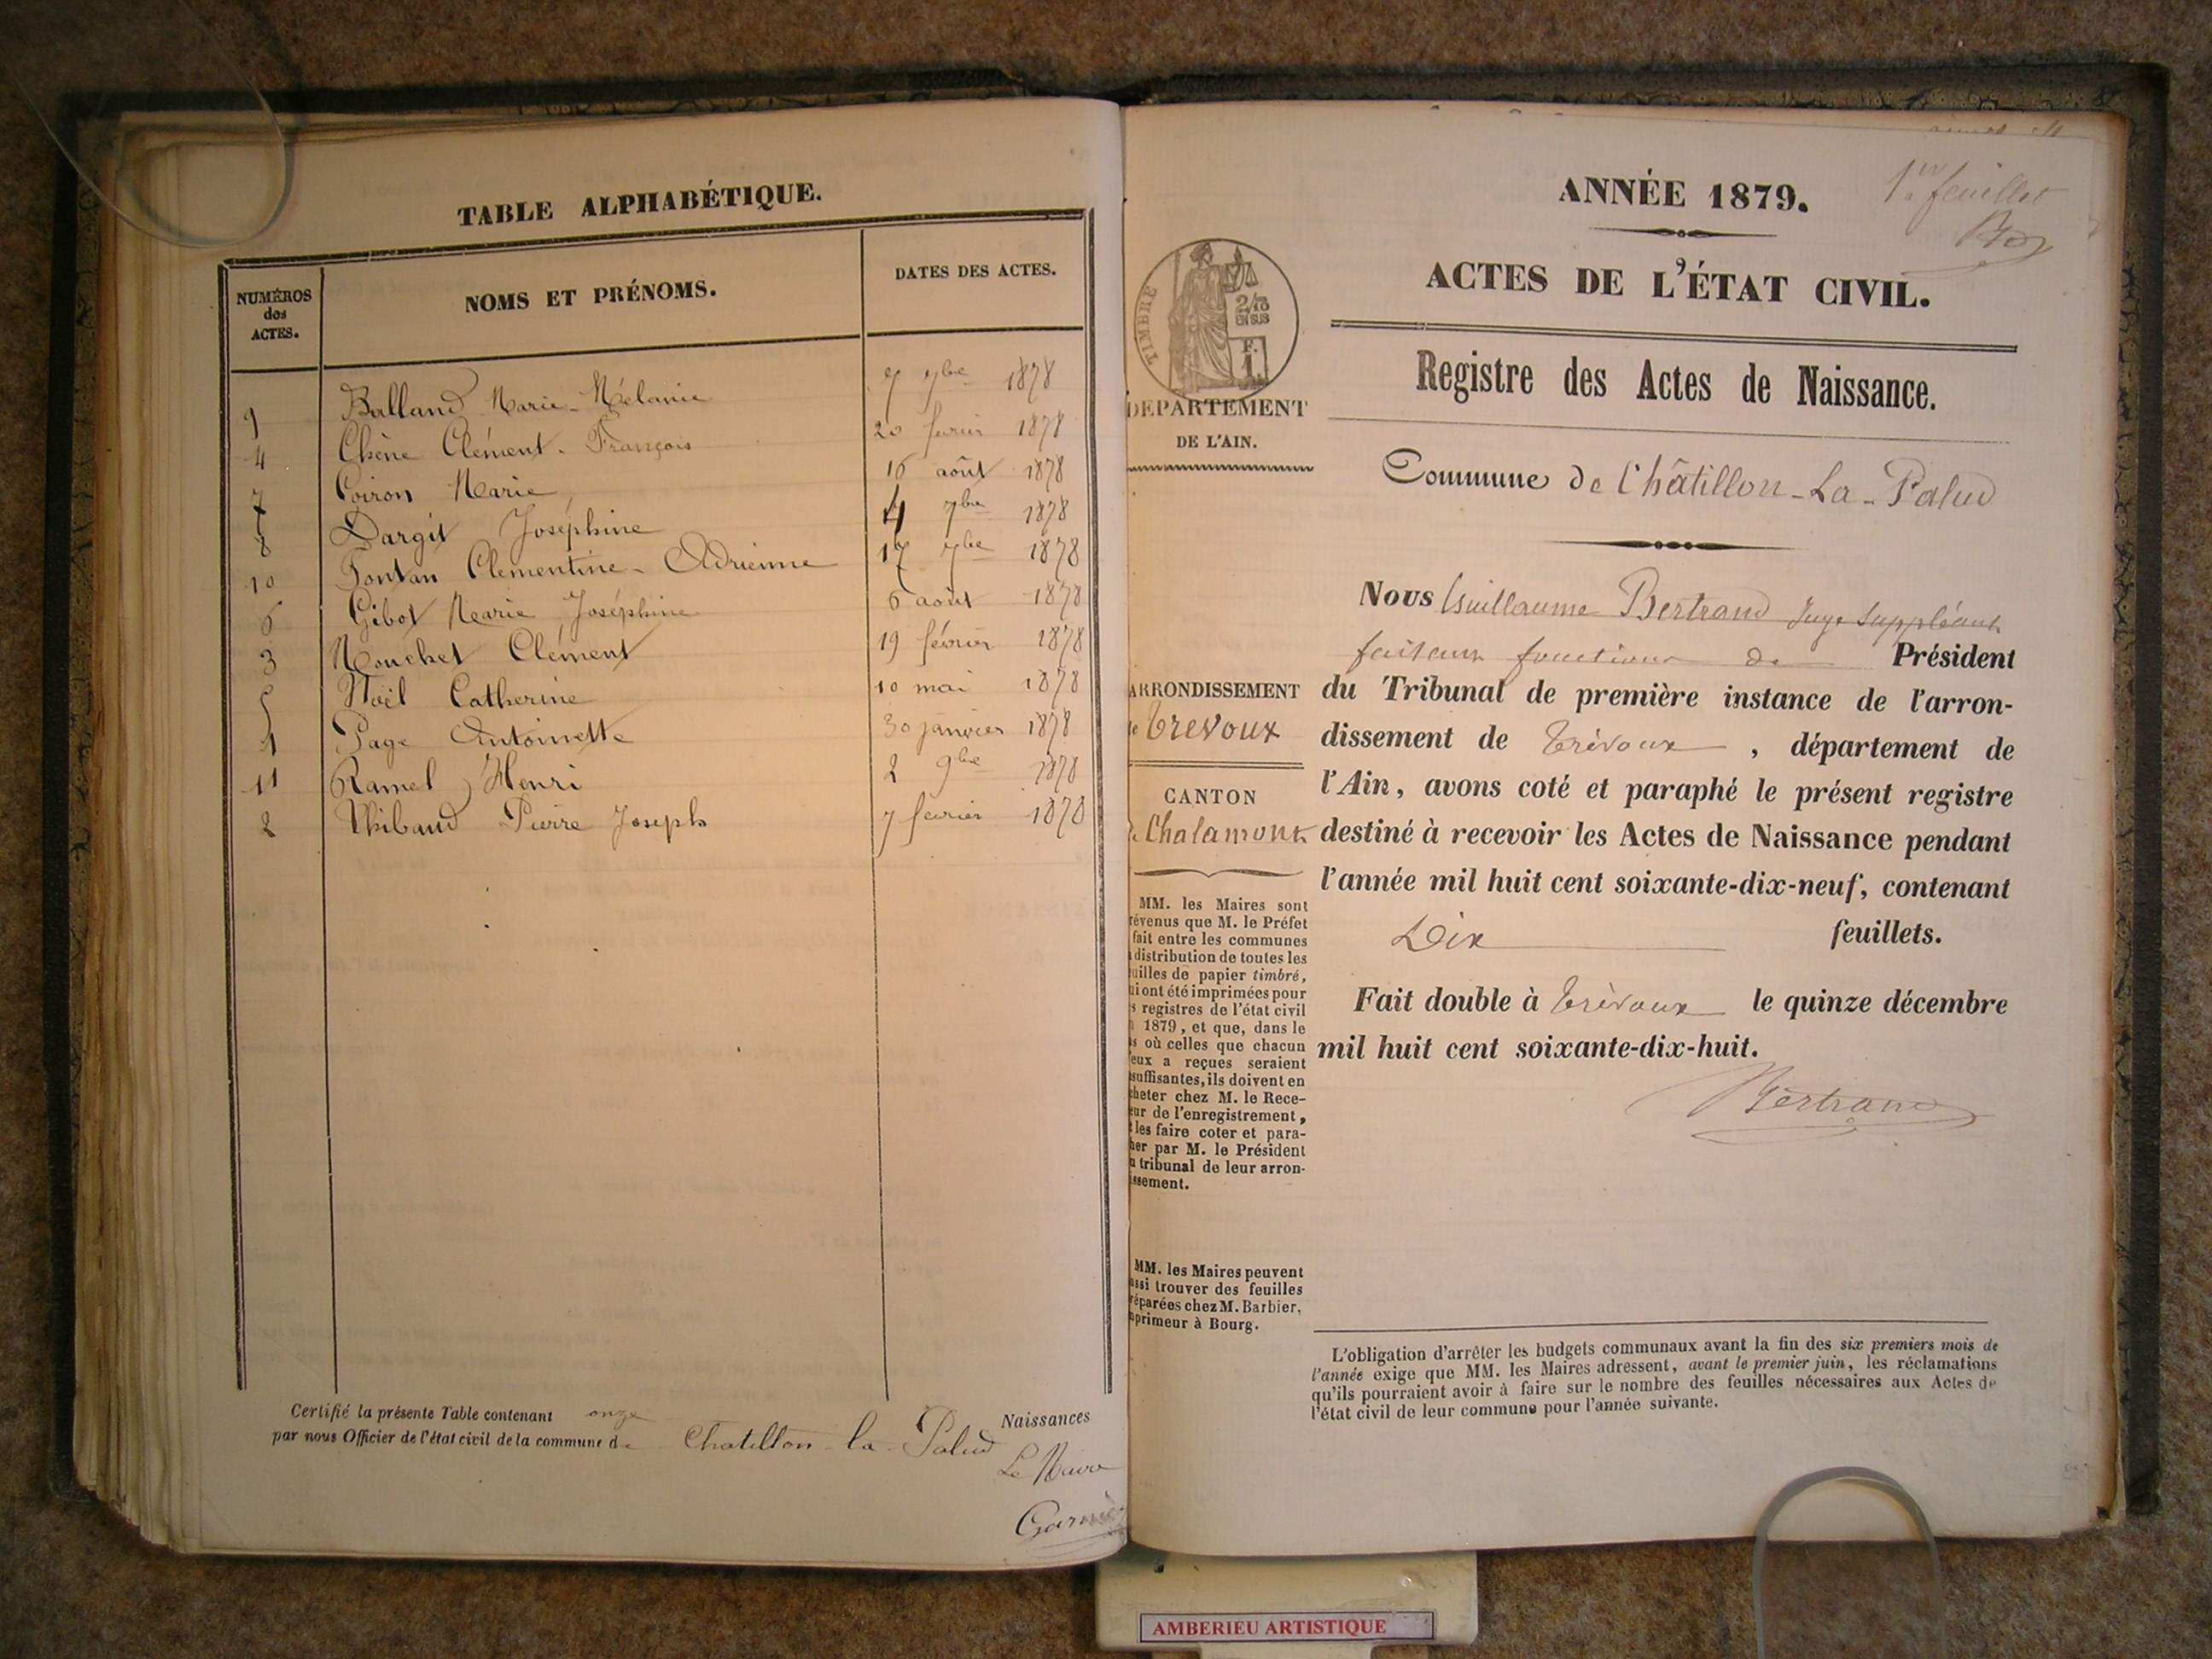 TABLE ALPHABÉTIQUE.
NUMÉROS des ACTES. NOMS ET PRÉNOMS. DATES DES ACTES.
9 Balland Marie-Mélanie 7 7bre 1878
4 Chêne Clément-François 20 fevrier 1878
7 Coiron Marie 16 août 1878
8 Dargit Joséphine 4 7bre 1878
10 Fontan Clementine-Adrienne 17 7bre 1878
6 Gibot Marie Joséphine 6 août 1878
3 Mouchet Clément 19 février 1878
5 Noël Catherine 10 mai 1878
1 Page Antoinette 30 janvier 1878
11 Ramel Henri 2 9bre 1878
2 Thibaud Pierre Joseph 7 fevrier 1878
Certifié la présente Table contenant onze Naissances
par nous Officier de l'état civil de la commune de Chatillon-la-Palud
Le Maire
Garnier
1er feuillet
ANNÉE 1879.
ACTES DE L'ÉTAT CIVIL.
TIMBRE
2/10
EN SUS
F.
1.
Registre des Actes de Naissance.
DÉPARTEMENT
DE L'AIN.
Commune de Châtillon-La-Palud
Nous Guillaume Bertrand Juge Suppléant
faisant fonctions de Président
du Tribunal de première instance de l'arron-
dissement de Trévoux, département de
l'Ain, avons coté et paraphé le présent registre
destiné à recevoir les Actes de Naissance pendant
l'année mil huit cent soixante-dix-neuf, contenant
Dix feuillets.
Fait double à Trévoux le quinze décembre
mil huit cent soixante-dix-huit.
Bertrand
ARRONDISSEMENT
de Trevoux
CANTON
de Chalamont
MM. les Maires sont
révenus que M. le Préfet
fait entre les communes
distribution de toutes les
uilles de papier timbré,
ui ont été imprimées pour
s registres de l'état civil
1879, et que, dans le
s où celles que chacun
eux a reçues seraient
suffisantes, ils doivent en
cheter chez M. le Rece-
eur de l'enregistrement,
t les faire coter et para-
her par M. le Président
u tribunal de leur arron-
issement.
MM. les Maires peuvent
ussi trouver des feuilles
réparées chez M. Barbier,
mprimeur à Bourg.
L'obligation d'arrêter les budgets communaux avant la fin des six premiers mois de
l'année exige que MM. les Maires adressent, avant le premier juin, les réclamations
qu'ils pourraient avoir à faire sur le nombre des feuilles nécessaires aux Actes de
l'état civil de leur commune pour l'année suivante.
AMBERIEU ARTISTIQUE